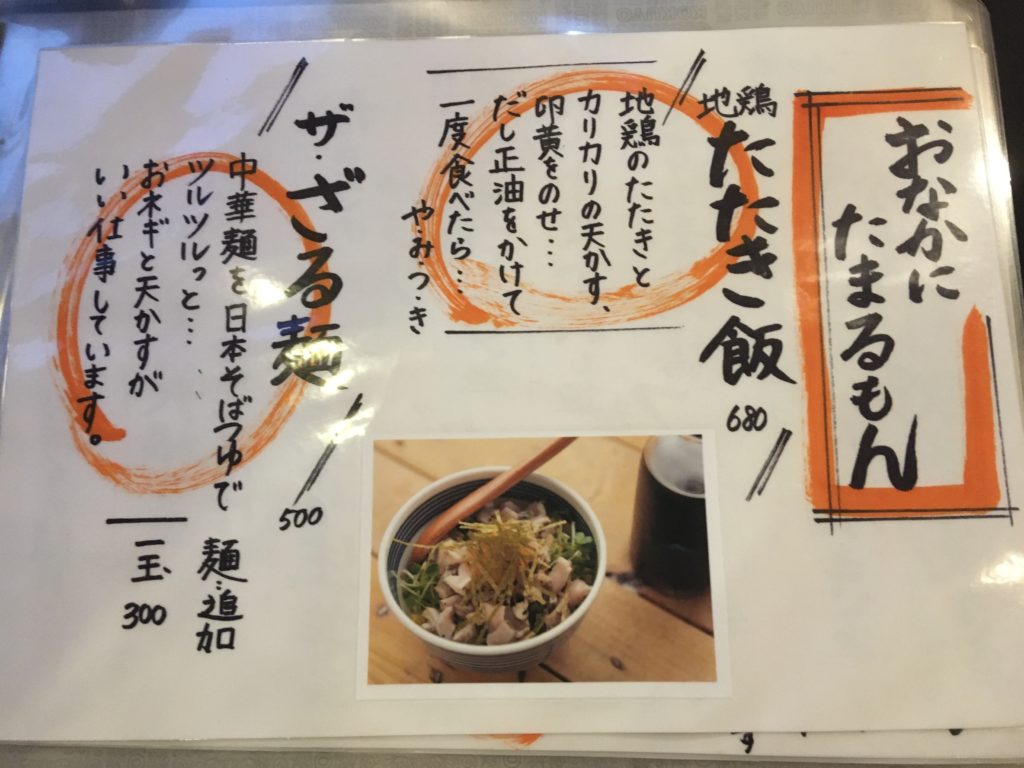 おなかに
たまるもん
地鶏
たたき飯
680
地鶏のたたきと
カリカリの天かす、
卵黄をのせ…
だし正油をかけて
一度食べたら…
やみ・つ・き
ザ・ざる麺
500
中華麺を日本そばつゆで
ツルツルっと…
お木ギと天かすが
いい仕事しています。
麺追加
一玉
300